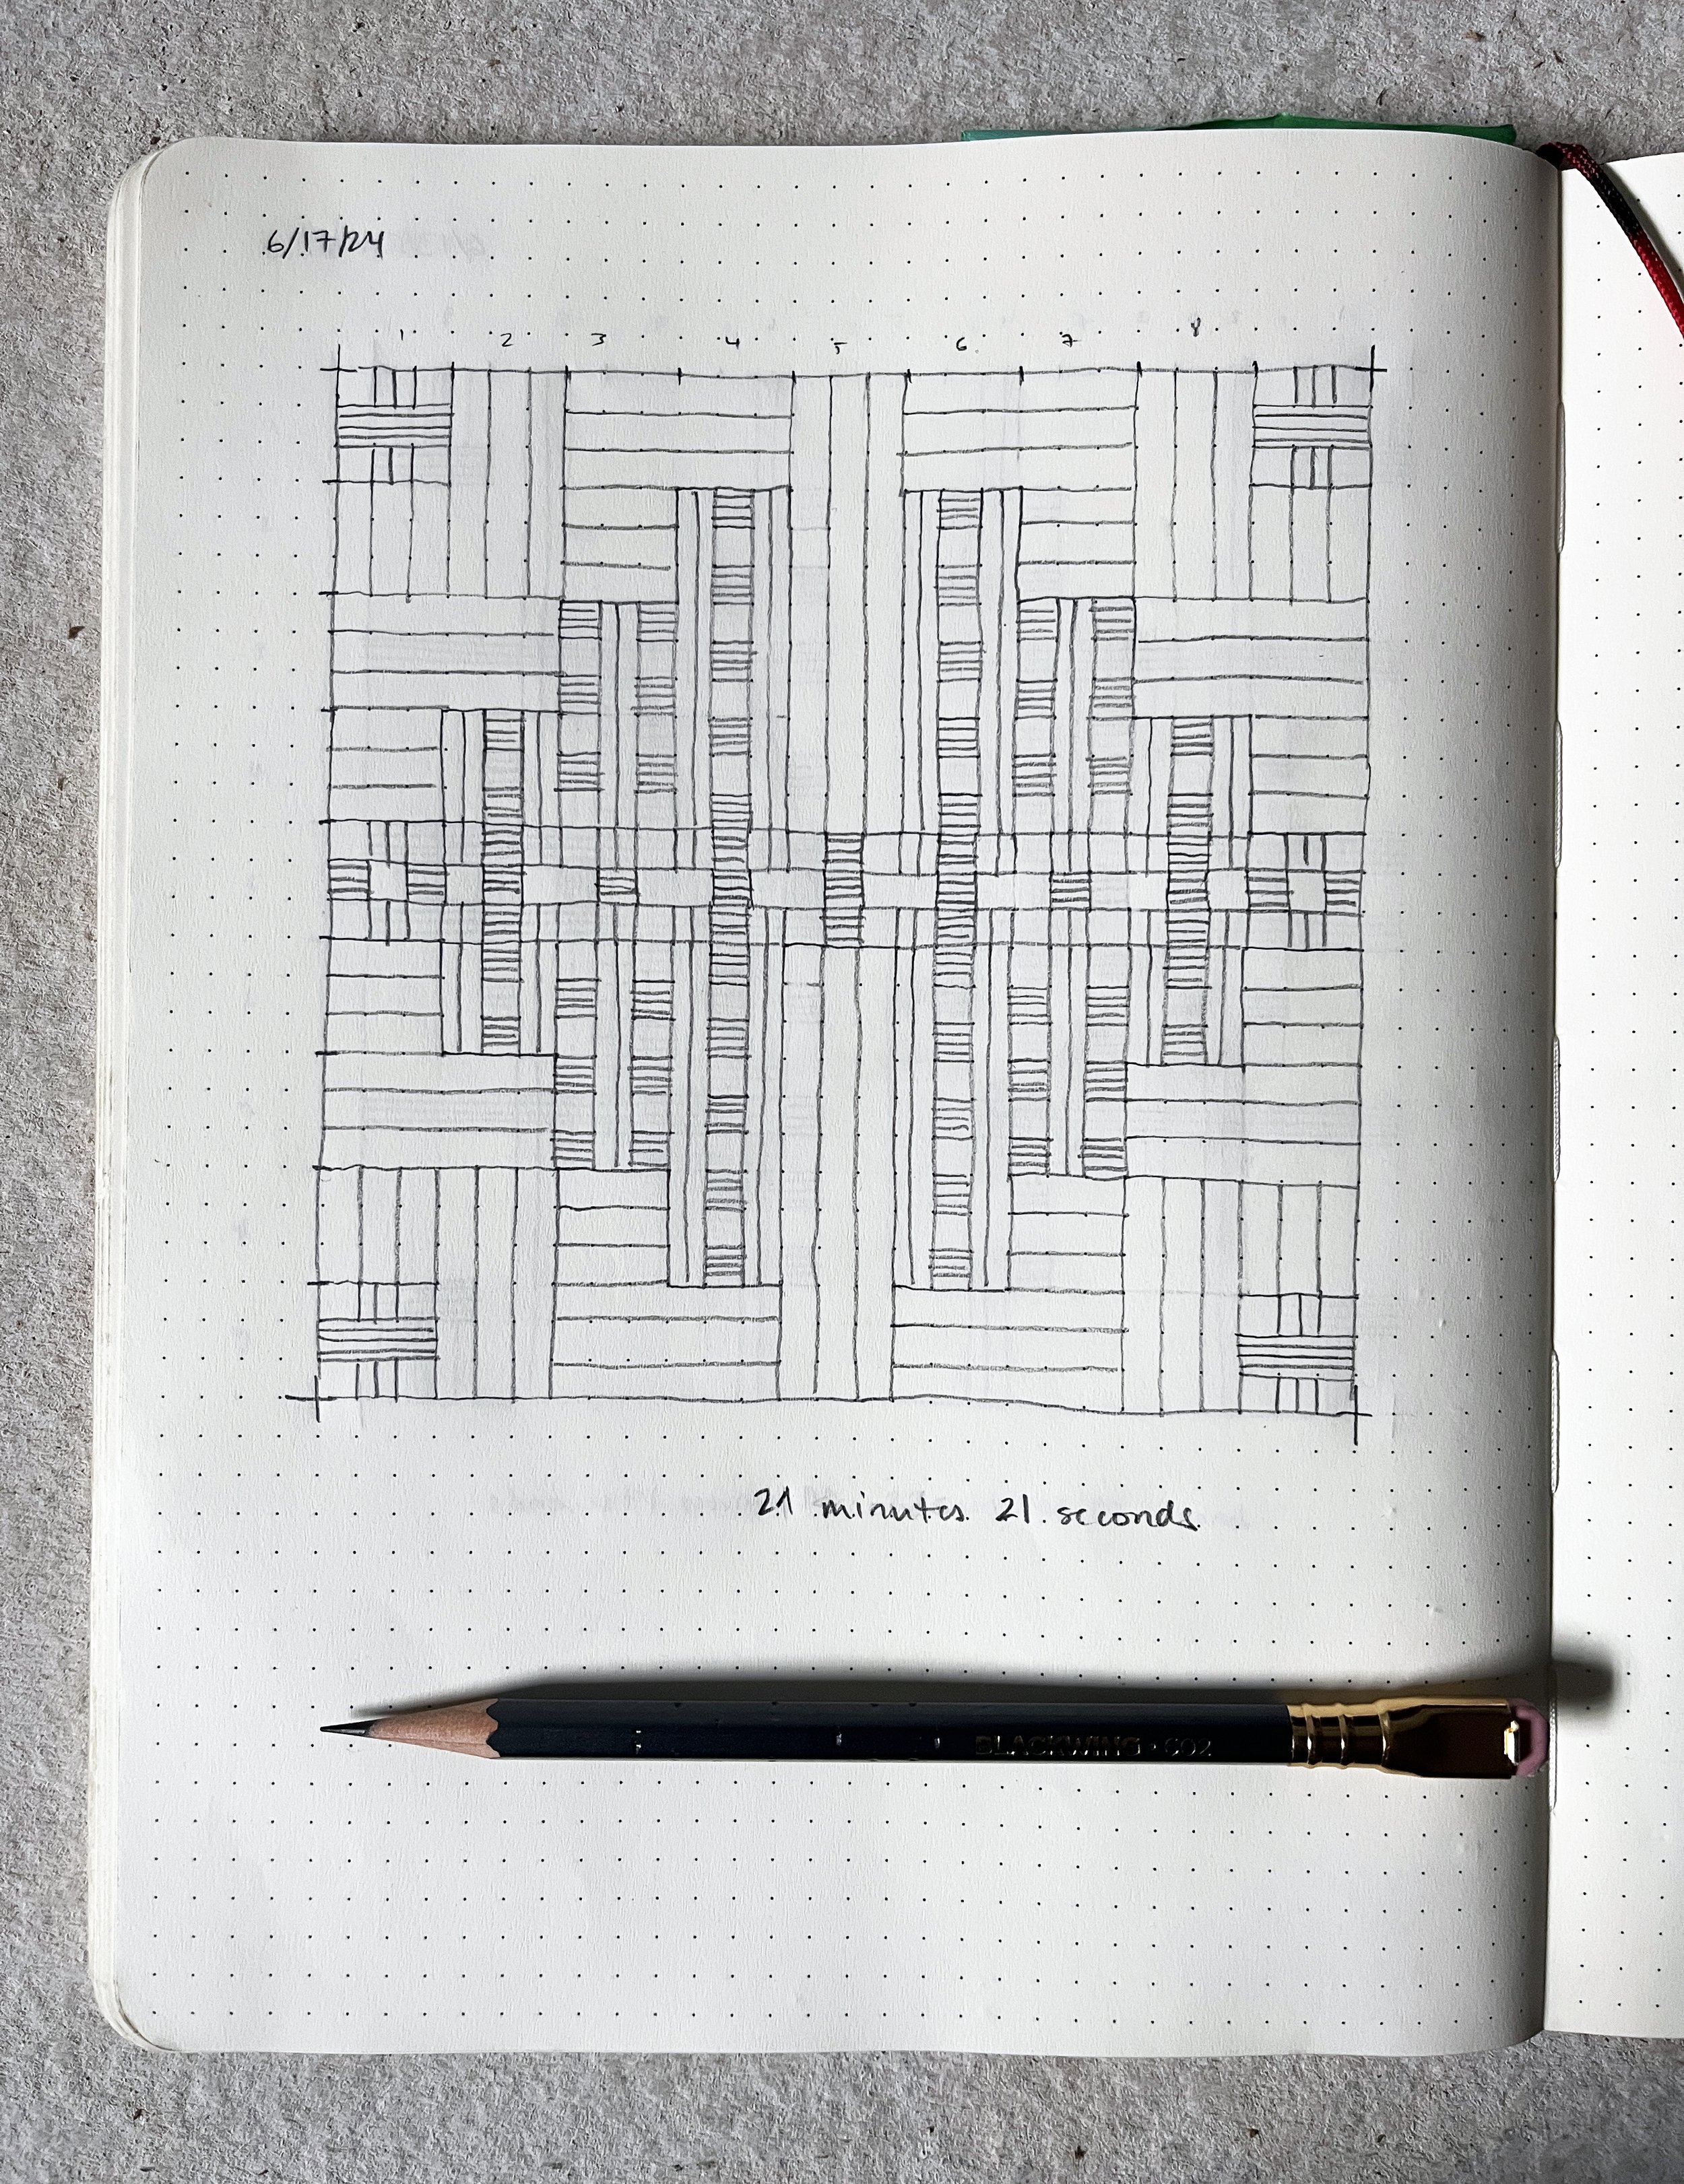 6/17/24
1 2 3 4 5 6 7 8
21 minutes 21 seconds
BLACKWING · 602